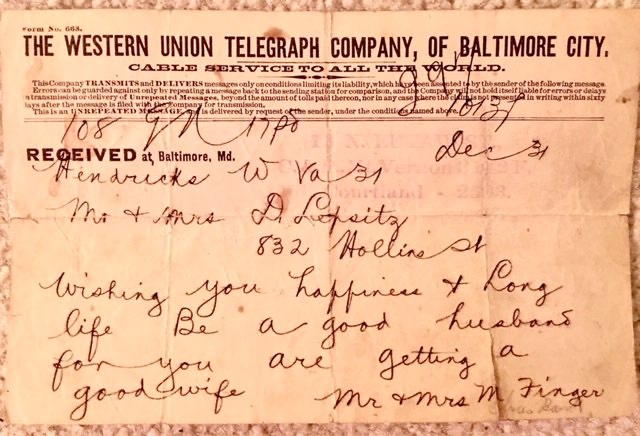 Form No. 668.
THE WESTERN UNION TELEGRAPH COMPANY, OF BALTIMORE CITY.
CABLE SERVICE TO ALL THE WORLD.
This Company TRANSMITS and DELIVERS messages only on conditions limiting its liability, which have been assented to by the sender of the following message
Errors can be guarded against only by repeating a message back to the sending station for comparison, and the Company will not hold itself liable for errors or delays
in transmission or delivery of Unrepeated Messages, beyond the amount of tolls paid thereon, nor in any case where the claim is not presented in writing within sixty
days after the message is filed with the Company for transmission.
This is an UNREPEATED MESSAGE and is delivered by request of the sender, under the conditions named above.
108 17 pd
RECEIVED at Baltimore, Md. Dec 31
Hendricks W Va 31
Mr & Mrs D. Lopsitz
832 Hollins St
Wishing you happiness & Long
life Be a good husband
for you are getting a
good wife
Mr & Mrs M Finger